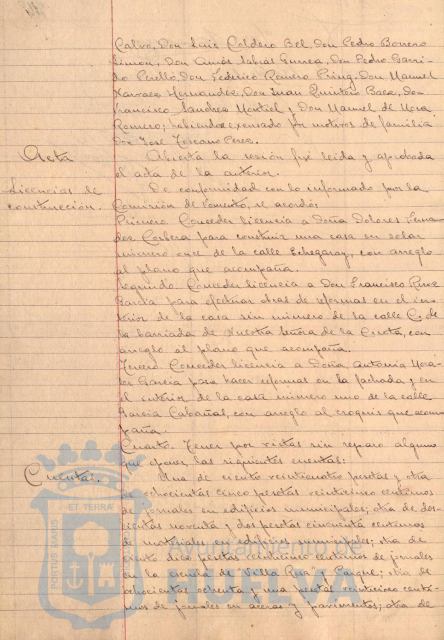 Calvo, Don Luis Caldero Bel, Don Pedro Borrero
Limon, Don Amós Sabras Gurrea, Don Pedro Garri-
do Perelló, Don Federico Romero Pring, Don Manuel
Narraez Hernandez, Don Juan Quintero Baez, Don
Francisco Sandrea Montiel y Don Manuel de Mora
Romero; habiendo excusado por motivos de familia
Don José Toscano Perez.
Acta
Abierta la sesión fue leida y aprobada
el acta de la anterior.
Licencias de
construcción.
De conformidad con lo informado por la
Comisión de Fomento, se acordó:
Primero. Conceder licencia a Doña Dolores
Corbera para construir una casa en solar
número once de la calle Echegaray, con arreglo
al plano que acompaña.
Segundo. Conceder licencia a Don Francisco Ruiz
Garcia para efectuar obras de reformas en el inte-
rior de la casa sin número de la calle C. de
la barriada de Nuestra Señora de la Cinta, con
arreglo al plano que acompaña.
Tercero. Conceder licencia a Doña Antonia Mora-
les Garcia para hacer reformas en la fachada y en
el interior de la casa número uno de la calle
Garcia Cabañas, con arreglo al croquis que acom-
paña.
Cuarto. Tener por vistas sin reparo alguno
que oponer las siguientes cuentas:
Cuentas.
Una de ciento veinticuatro pesetas y otra
de ochocientas cinco pesetas veinticinco centimos
de jornales en edificios municipales; otra de dos-
cientas noventa y dos pesetas cincuenta centimos
de materiales en edificios municipales; otra de
ciento diez pesetas cincuenta centimos de jornales
en la escuela de "Villa Rosa" y Parque; otra de
ochocientas ochenta y una pesetas veinticinco centi-
mos de jornales en aceras y pavimentos; otra de
PORTUS MARIS
ET TERRAE
Ayuntamiento de
HUELVA